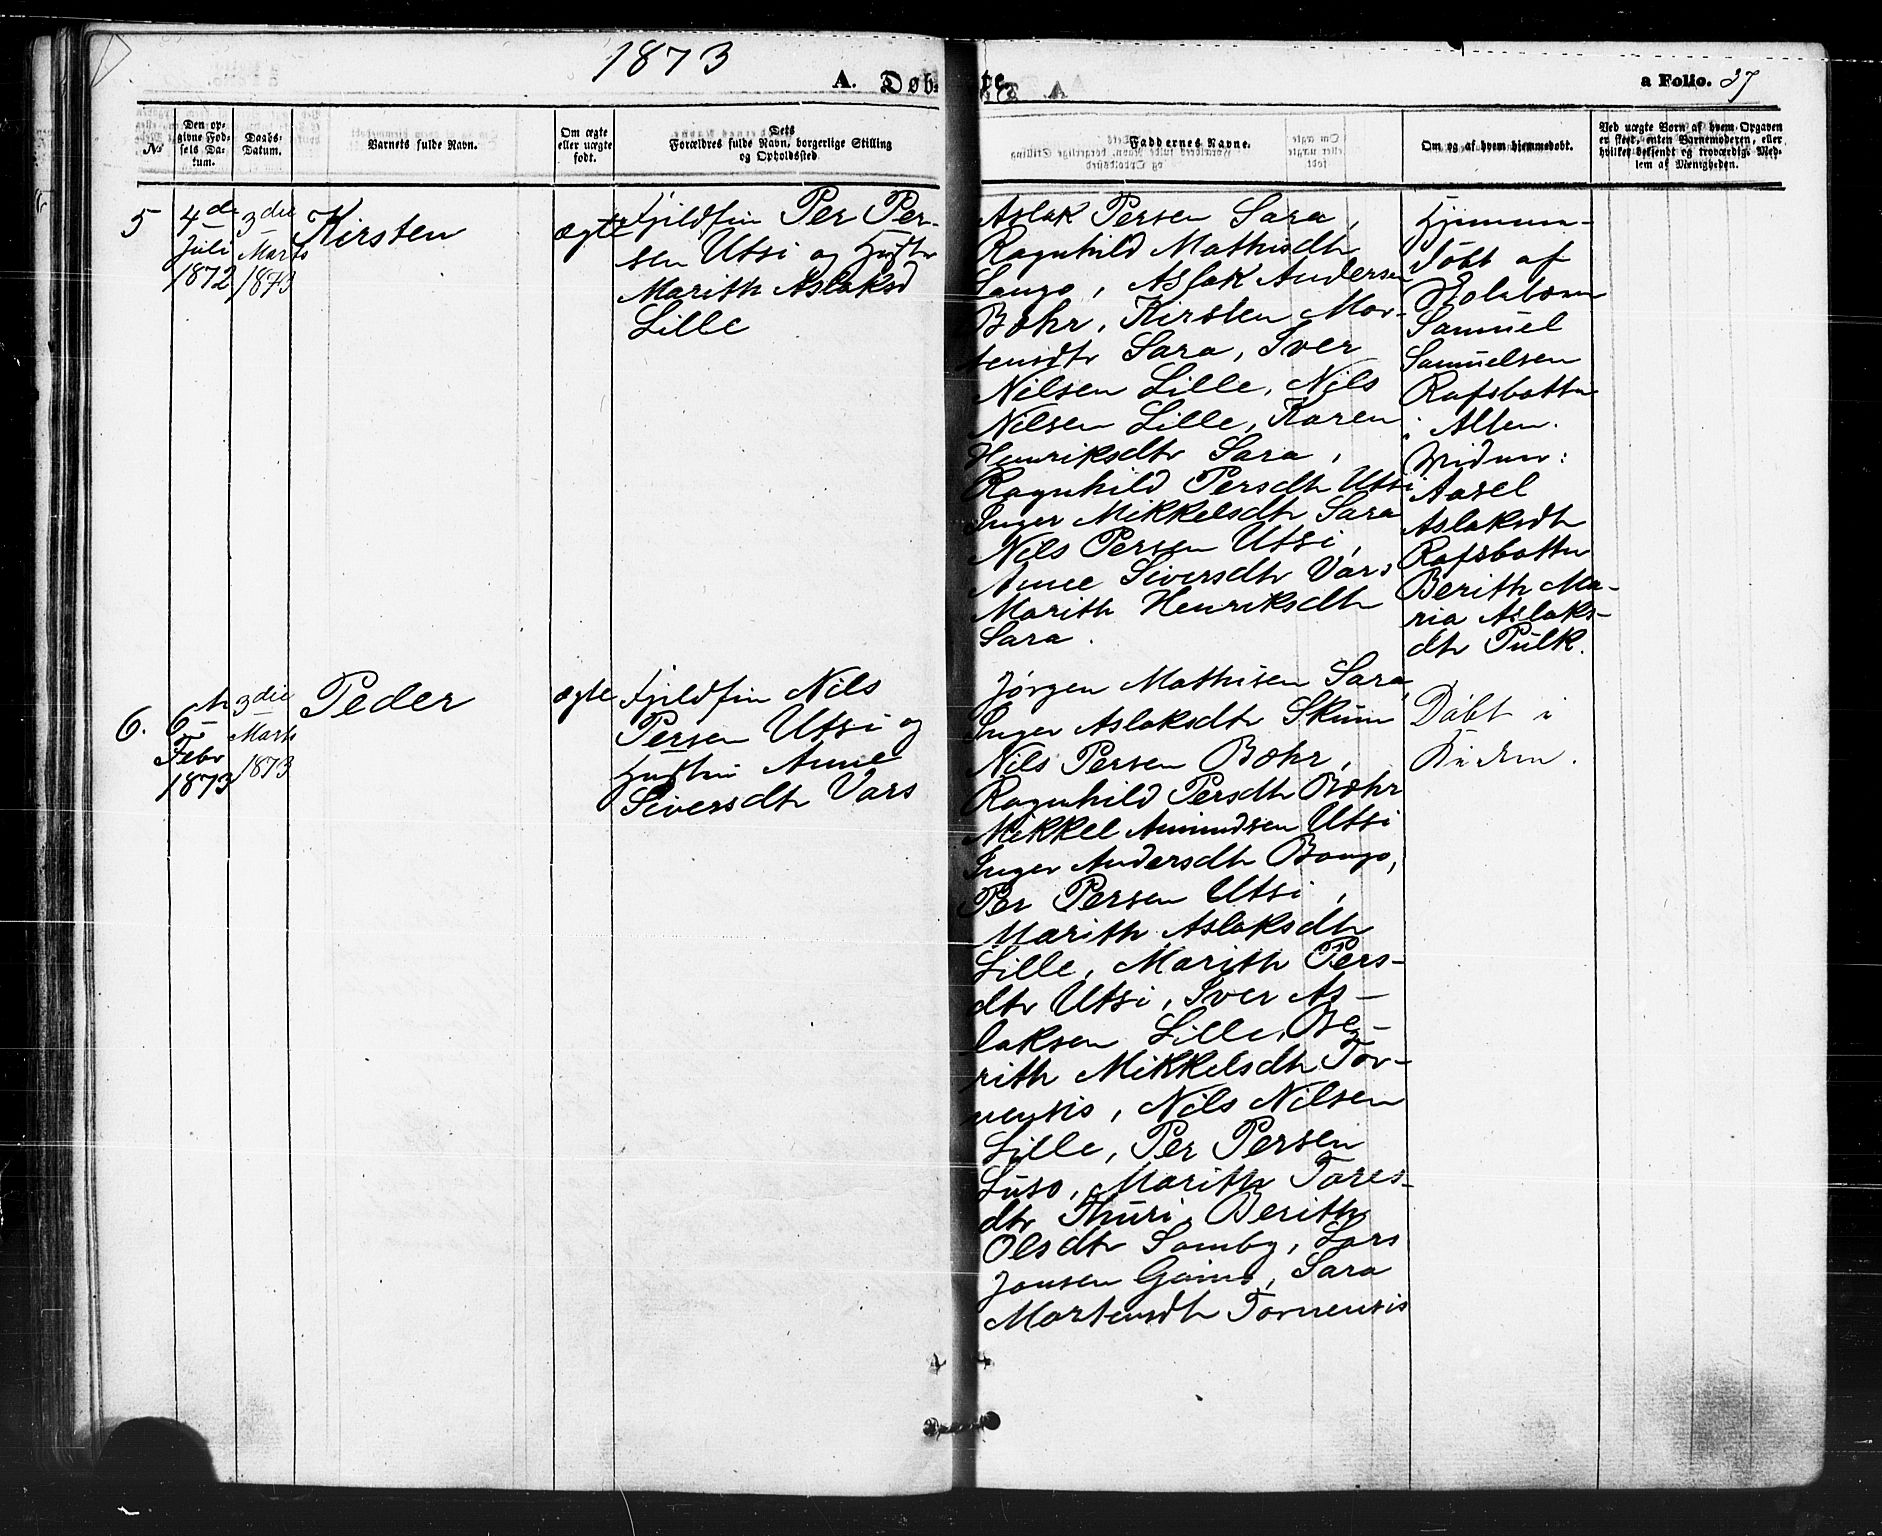 1873
A. Døbte.
a Folio. 37
No
Den opgivne Fødsels Datum.
Daabs-Datum.
Barnets fulde Navn.
Om ægte eller uægte født.
Dets Forældres fulde Navn, borgerlige Stilling og Opholdssted.
Faddernes Navne.
Om og af hvem hjemmedøbt.
Ved uægte Børn af hvem Opgaven er skeet, enten Barnemoderen, eller hvilket bekjendt og troværdigt Medlem af Menigheden.
5
4de
Juli
1872
3die
Marts
1873
Kirsten
ægte
Fjeldfin Per Per-
sen Utsi og Hustr
Marith Aslaksd
Lille
Aslak Persen Sara,
Ragnhild Mathisdtr
Aslak Andersen
Bæhr, Kirsten Mor-
tensdtr Sara, Iver
Nilsen Lille, Nils
Nilsen Lille, Karen
Henriksdtr Sara,
Ragnhild Persdtr Utsi
Inger Mikkelsdtr Sara
Nils Persen Utsi,
Anne Siversdtr Vars
Marith Henriksdtr
Sara.
Hjemme-
døbt af
Samuel
Samuelsen
Rafsbotten
i Alten.
Vidner:
Aasel
Aslaksdtr
Rafsbotten
Berith Ma-
ria Aslaks-
dtr Pulk.
6.
6te
Febr
1873
3die
Marts
1873
Peder
ægte
Fjeldfin Nils
Persen Utsi og
Hustru Anne
Siversdtr Vars
Jørgen Mathisen Sara,
Inger Aslaksdtr Skum
Nils Persen Bæhr,
Ragnhild Persdtr Bæhr
Mikkel Amundsen Utsi
Inger Andersdtr Bongo,
Per Persen Utsi,
Marith Aslaksdtr
Lille, Marith Pers-
dtr Utsi, Iver As-
laksen Lille, Be-
rith Mikkelsdtr Tor-
nensis, Nils Nilsen
Lille, Per Persen
Luso, Marith Tores-
dtr Thuri, Berith
Olsdtr Somby, Lars
Jonsen Gaino, Sara
Mortensdtr Tornensis
Døbt i
Kirken.